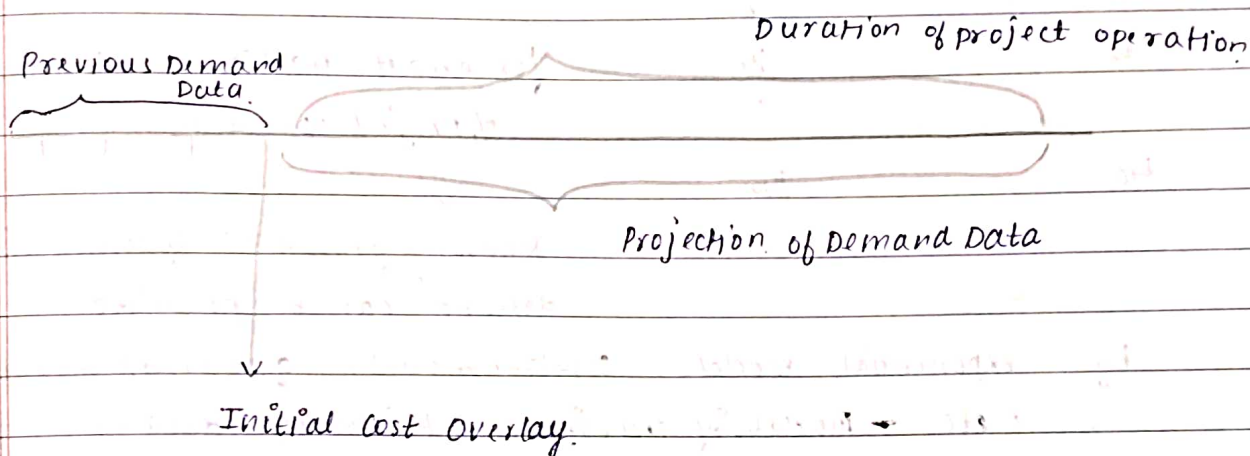 Duration of project operation
Previous Demand
Data.
Projection of Demand Data
Initial cost overlay.